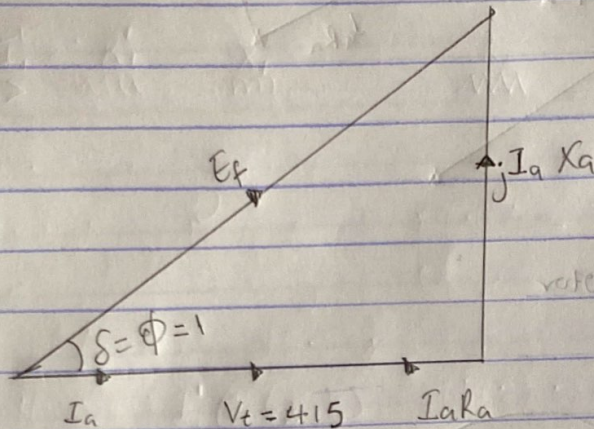 Ef
jIa Xa
δ = φ = 1
Ia Vt = 415 IaRa